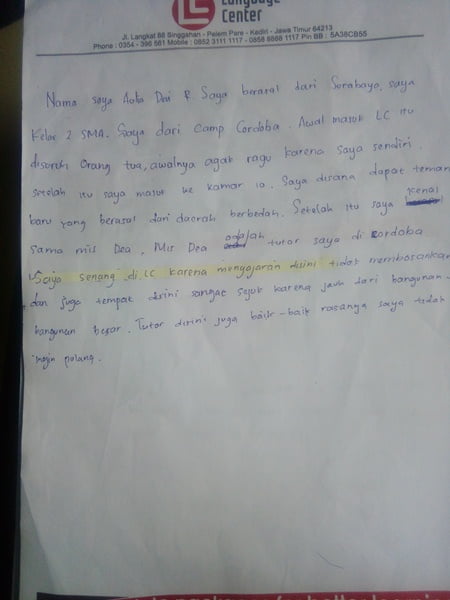 Language
Center
Jl. Langkat 88 Singgahan - Pelem Pare - Kediri - Jawa Timur 64213
Phone : 0354 - 396 561 Mobile : 0852 3111 1117 - 0856 1117 Pin BB : 5A38CB55
Nama saya Dewi R. Saya berasal dari Surabaya, saya
Kelas 2 SMA. Saya dari Camp Cordoba. Awal masuk LC itu
disuruh Orang tua, awalnya agak ragu karena saya sendiri.
setelah itu saya masuk ke kamar 10. Saya disana dapat teman
baru yang berasal dari daerah berbedah. Setelah itu saya kenal
sama mis Dea. Mis Dea adalah tutor saya di Cordoba
Saya senang di LC karena disini tidak membosankan
dan juga tempat disini sangat sejuk karena jauh dari bangunan-
bangunan besar. Tutor disini juga baik-baik rasanya saya tidak
ingin pulang.